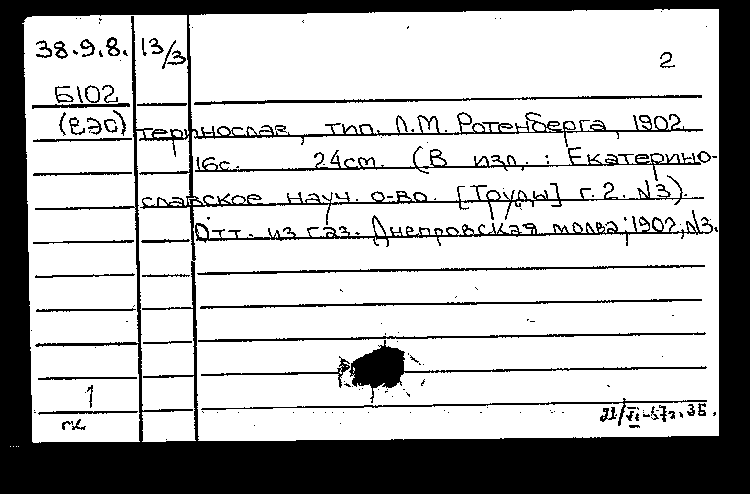 38.9.8. 13/3
2
Б102
(ЕЭС) теринослав, тип. Л.М. Ротенберга, 1902
16с. 24см. (В изд.: Екатерино-
славское науч. о-во. [Труды] г. 2. №3).
Отт. из газ. Днепровская молва; 1902, №3.
1
гк
21/VI-57г.